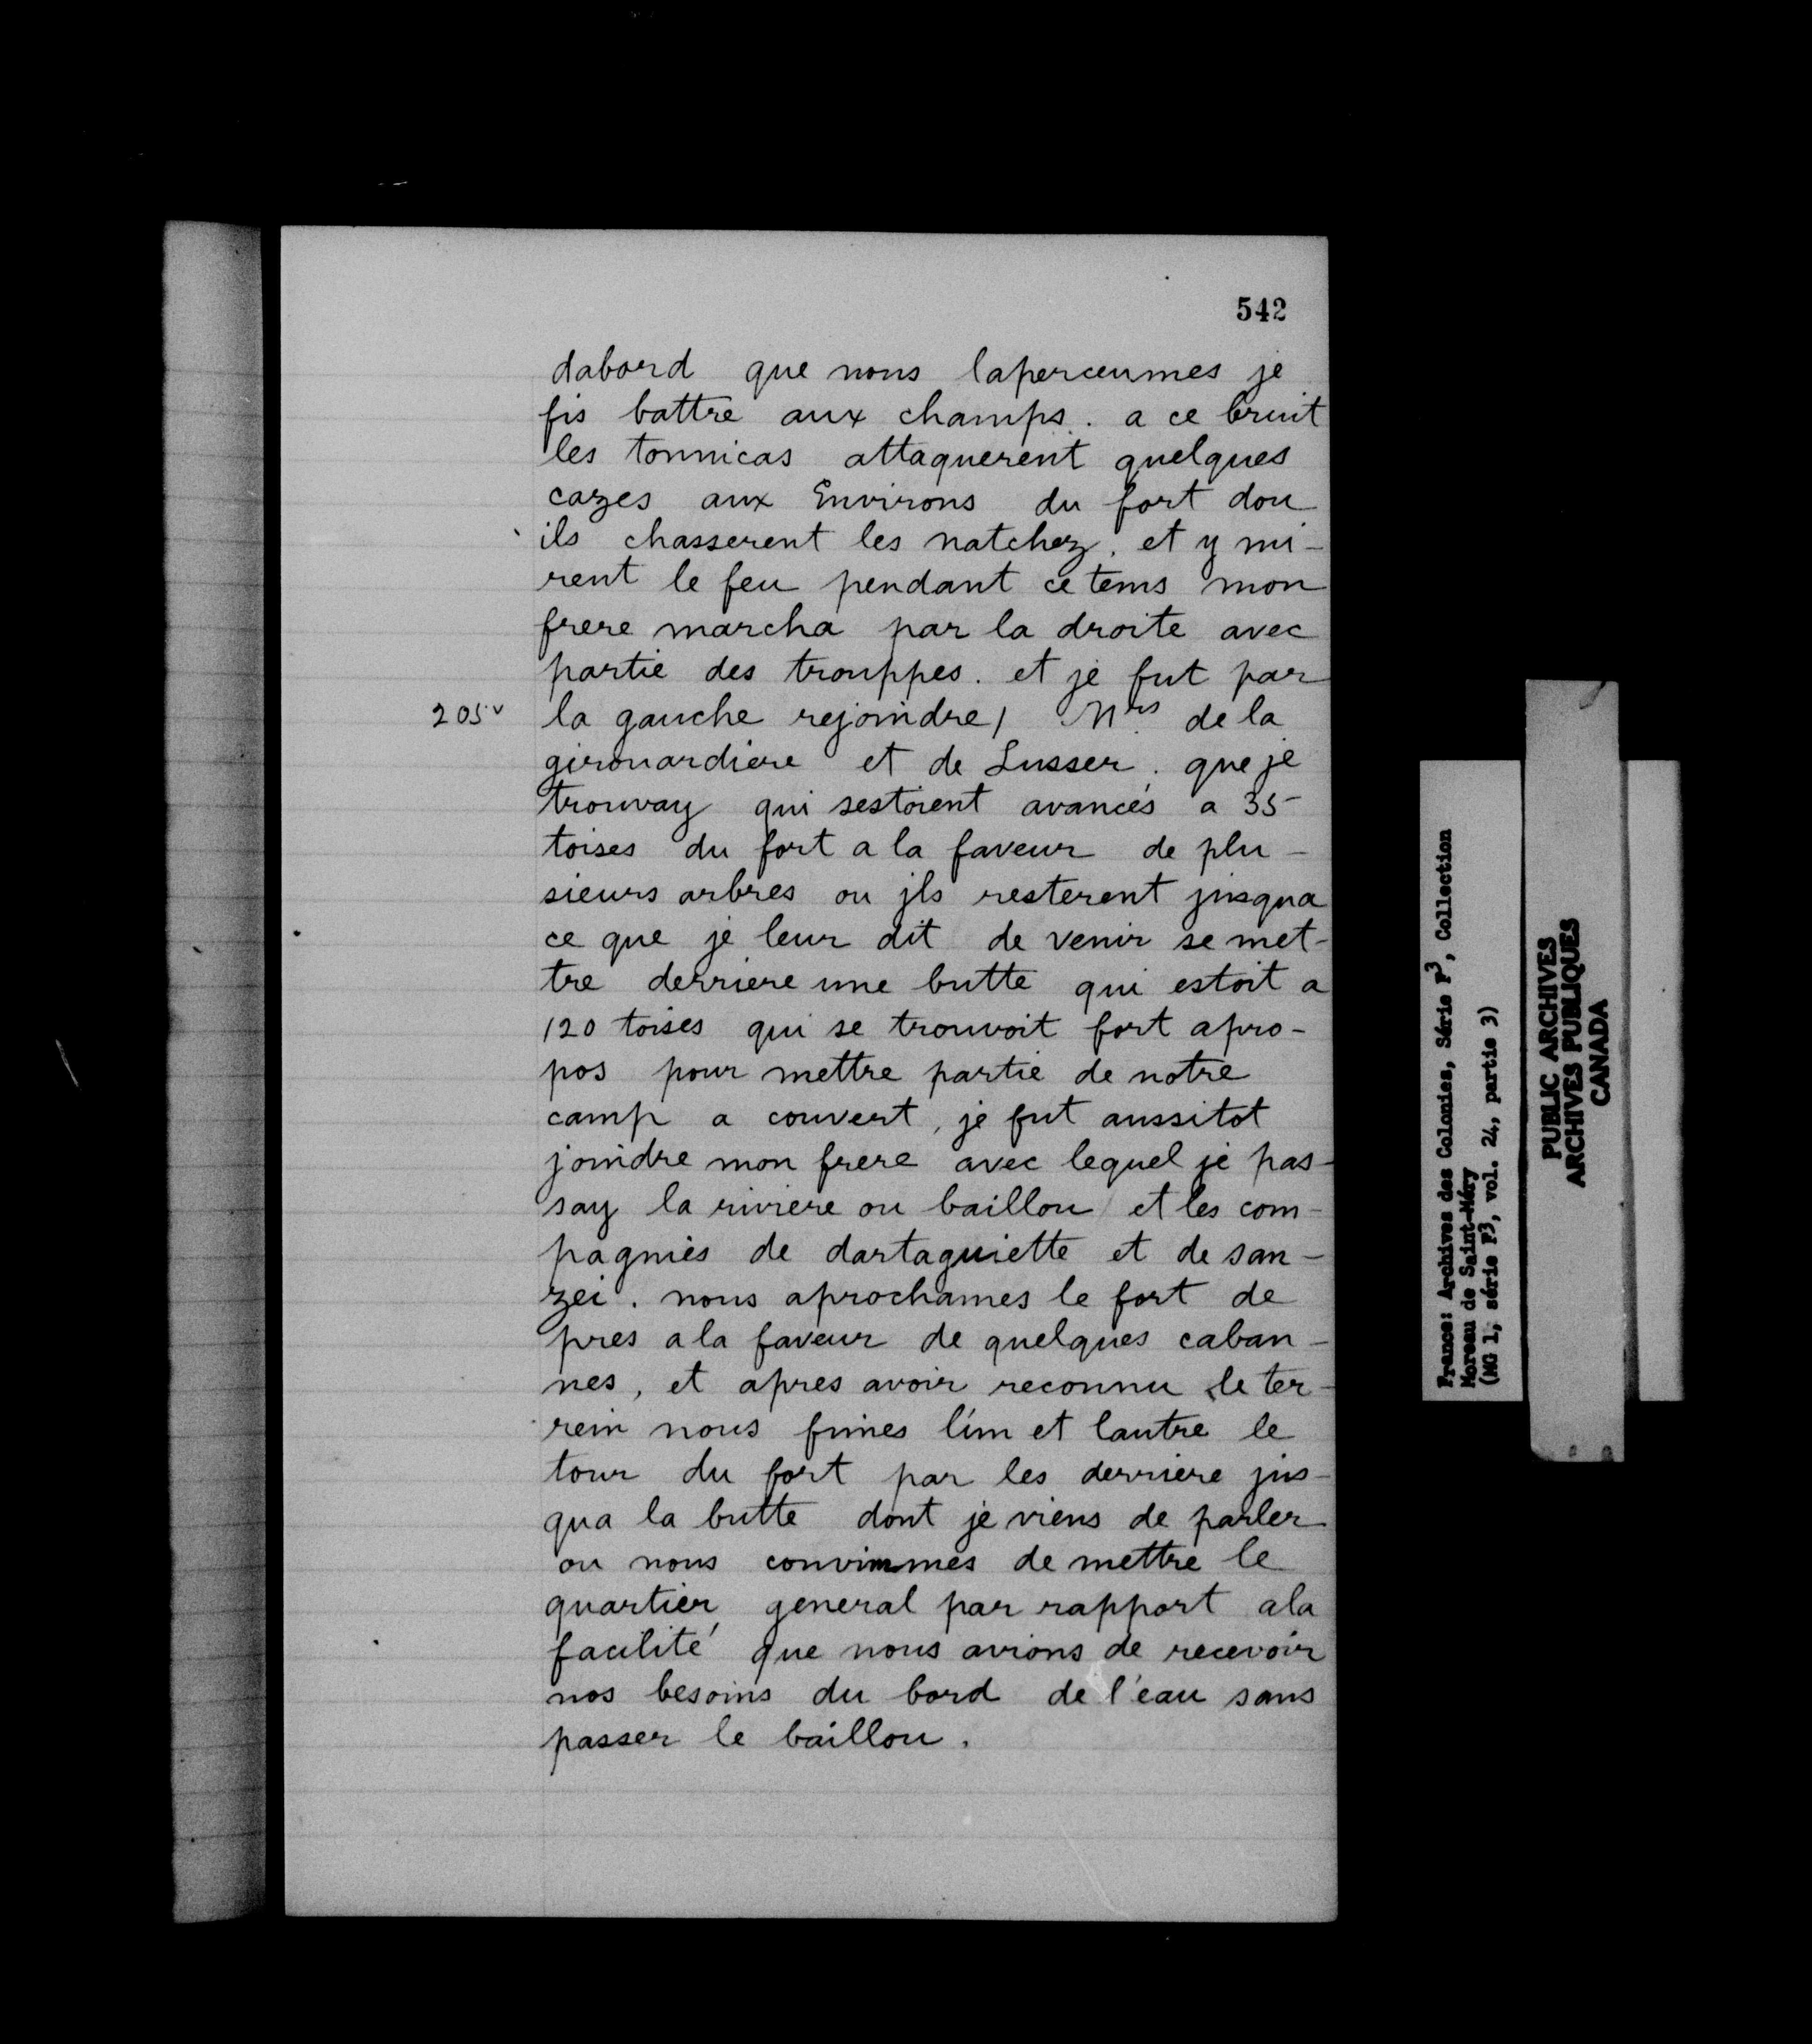 542
dabord que nous laperceumes je
fis battre aux champs. a ce bruit
les tonnicas attaquerent quelques
cazes aux Environs du fort dou
ils chasserent les natchez, et y mi-
rent le feu pendant ce tems mon
frere marcha par la droite avec
partie des trouppes. et je fut par
205v la gauche rejoindre / Mrs de la
girouardiere et de Lusser. que je
trouvay qui sestoient avancés a 35
toises du fort a la faveur de plu-
sieurs arbres ou jls resterent jusqua
ce que je leur dit de venir se met-
tre derriere une butte qui estoit a
120 toises qui se trouvoit fort apro-
pos pour mettre partie de notre
camp a couvert, je fut aussitot
joindre mon frere avec lequel je pas-
say la riviere ou baillou et les com-
pagnies de dartaguiette et de san-
zei. nous aprochames le fort de
pres a la faveur de quelques caban-
nes, et apres avoir reconnu le ter-
rein nous fumes l'un et lautre le
tour du fort par les derriere jus-
qua la butte dont je viens de parler
ou nous convimmes de mettre le
quartier general par rapport a la
facilité que nous avions de recevoir
nos besoins du bord de l'eau sans
passer le baillou.
France: Archives des Colonies, Série F3, Collection
Moreau de Saint-Méry
(MG 1, série F3, vol. 24, partie 3)
PUBLIC ARCHIVES
ARCHIVES PUBLIQUES
CANADA